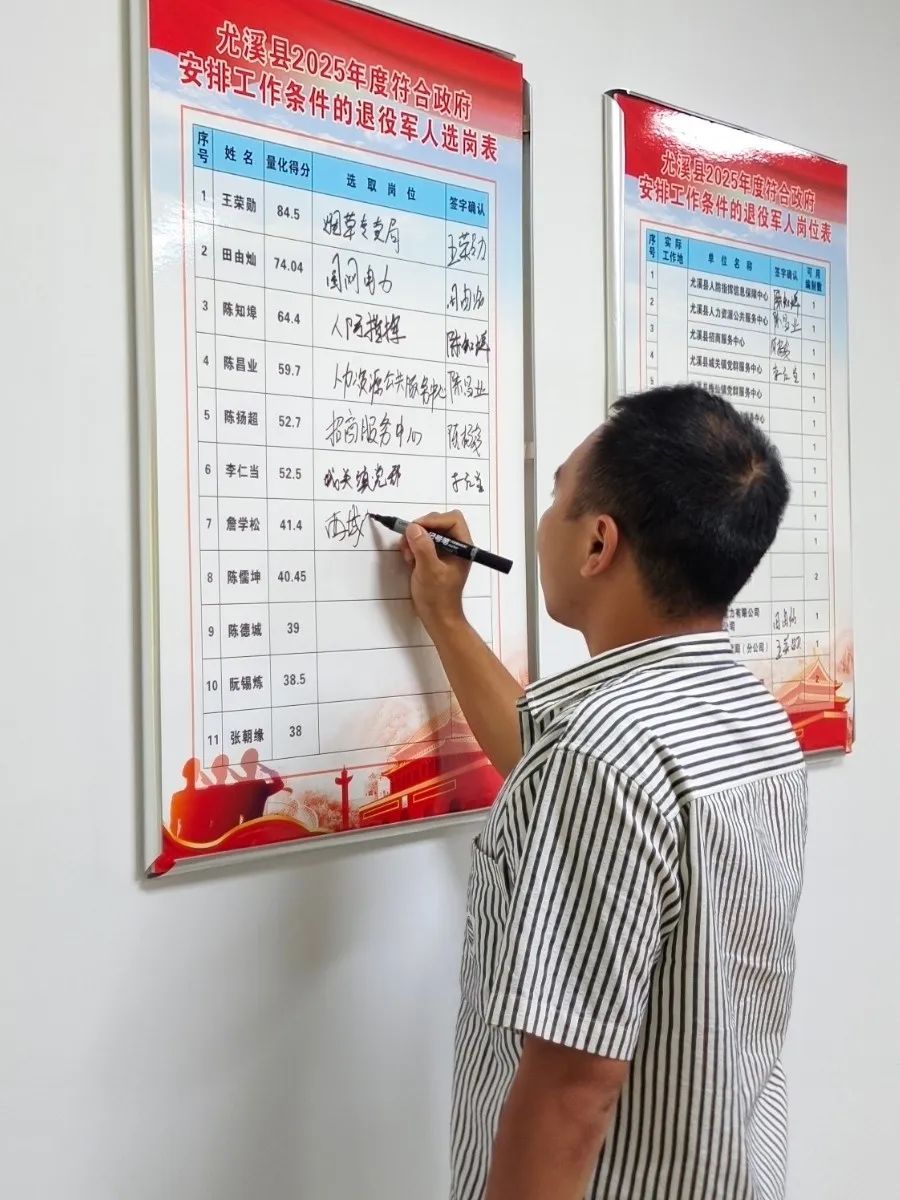 尤溪县2025年度符合政府
安排工作条件的退役军人选岗表
序号 姓名 量化得分 选取岗位 签字确认
1 王荣勋 84.5 烟草专卖局 王荣勋
2 田由灿 74.04 国网电力 田由灿
3 陈知埠 64.4 人防指挥 陈知埠
4 陈昌业 59.7 人力资源公共服务中心 陈昌业
5 陈扬超 52.7 招商服务中心 陈扬超
6 李仁当 52.5 城关镇党群 李仁当
7 詹学松 41.4 西城
8 陈儒坤 40.45
9 陈德城 39
10 阮锡炼 38.5
11 张朝缘 38
尤溪县2025年度符合政府
安排工作条件的退役军人岗位表
序号 实际工作地 单位名称 签字确认 可用编制数
1 尤溪县人防指挥信息保障中心 陈知埠 1
2 尤溪县人力资源公共服务中心 陈昌业 1
3 尤溪县招商服务中心 1
4 尤溪县城关镇党群服务中心 李仁当 1
5 县梅仙镇党群服务中心 1
1
1
1
1
1
2
力有限公司 田由灿 1
（分公司） 王荣勋 1